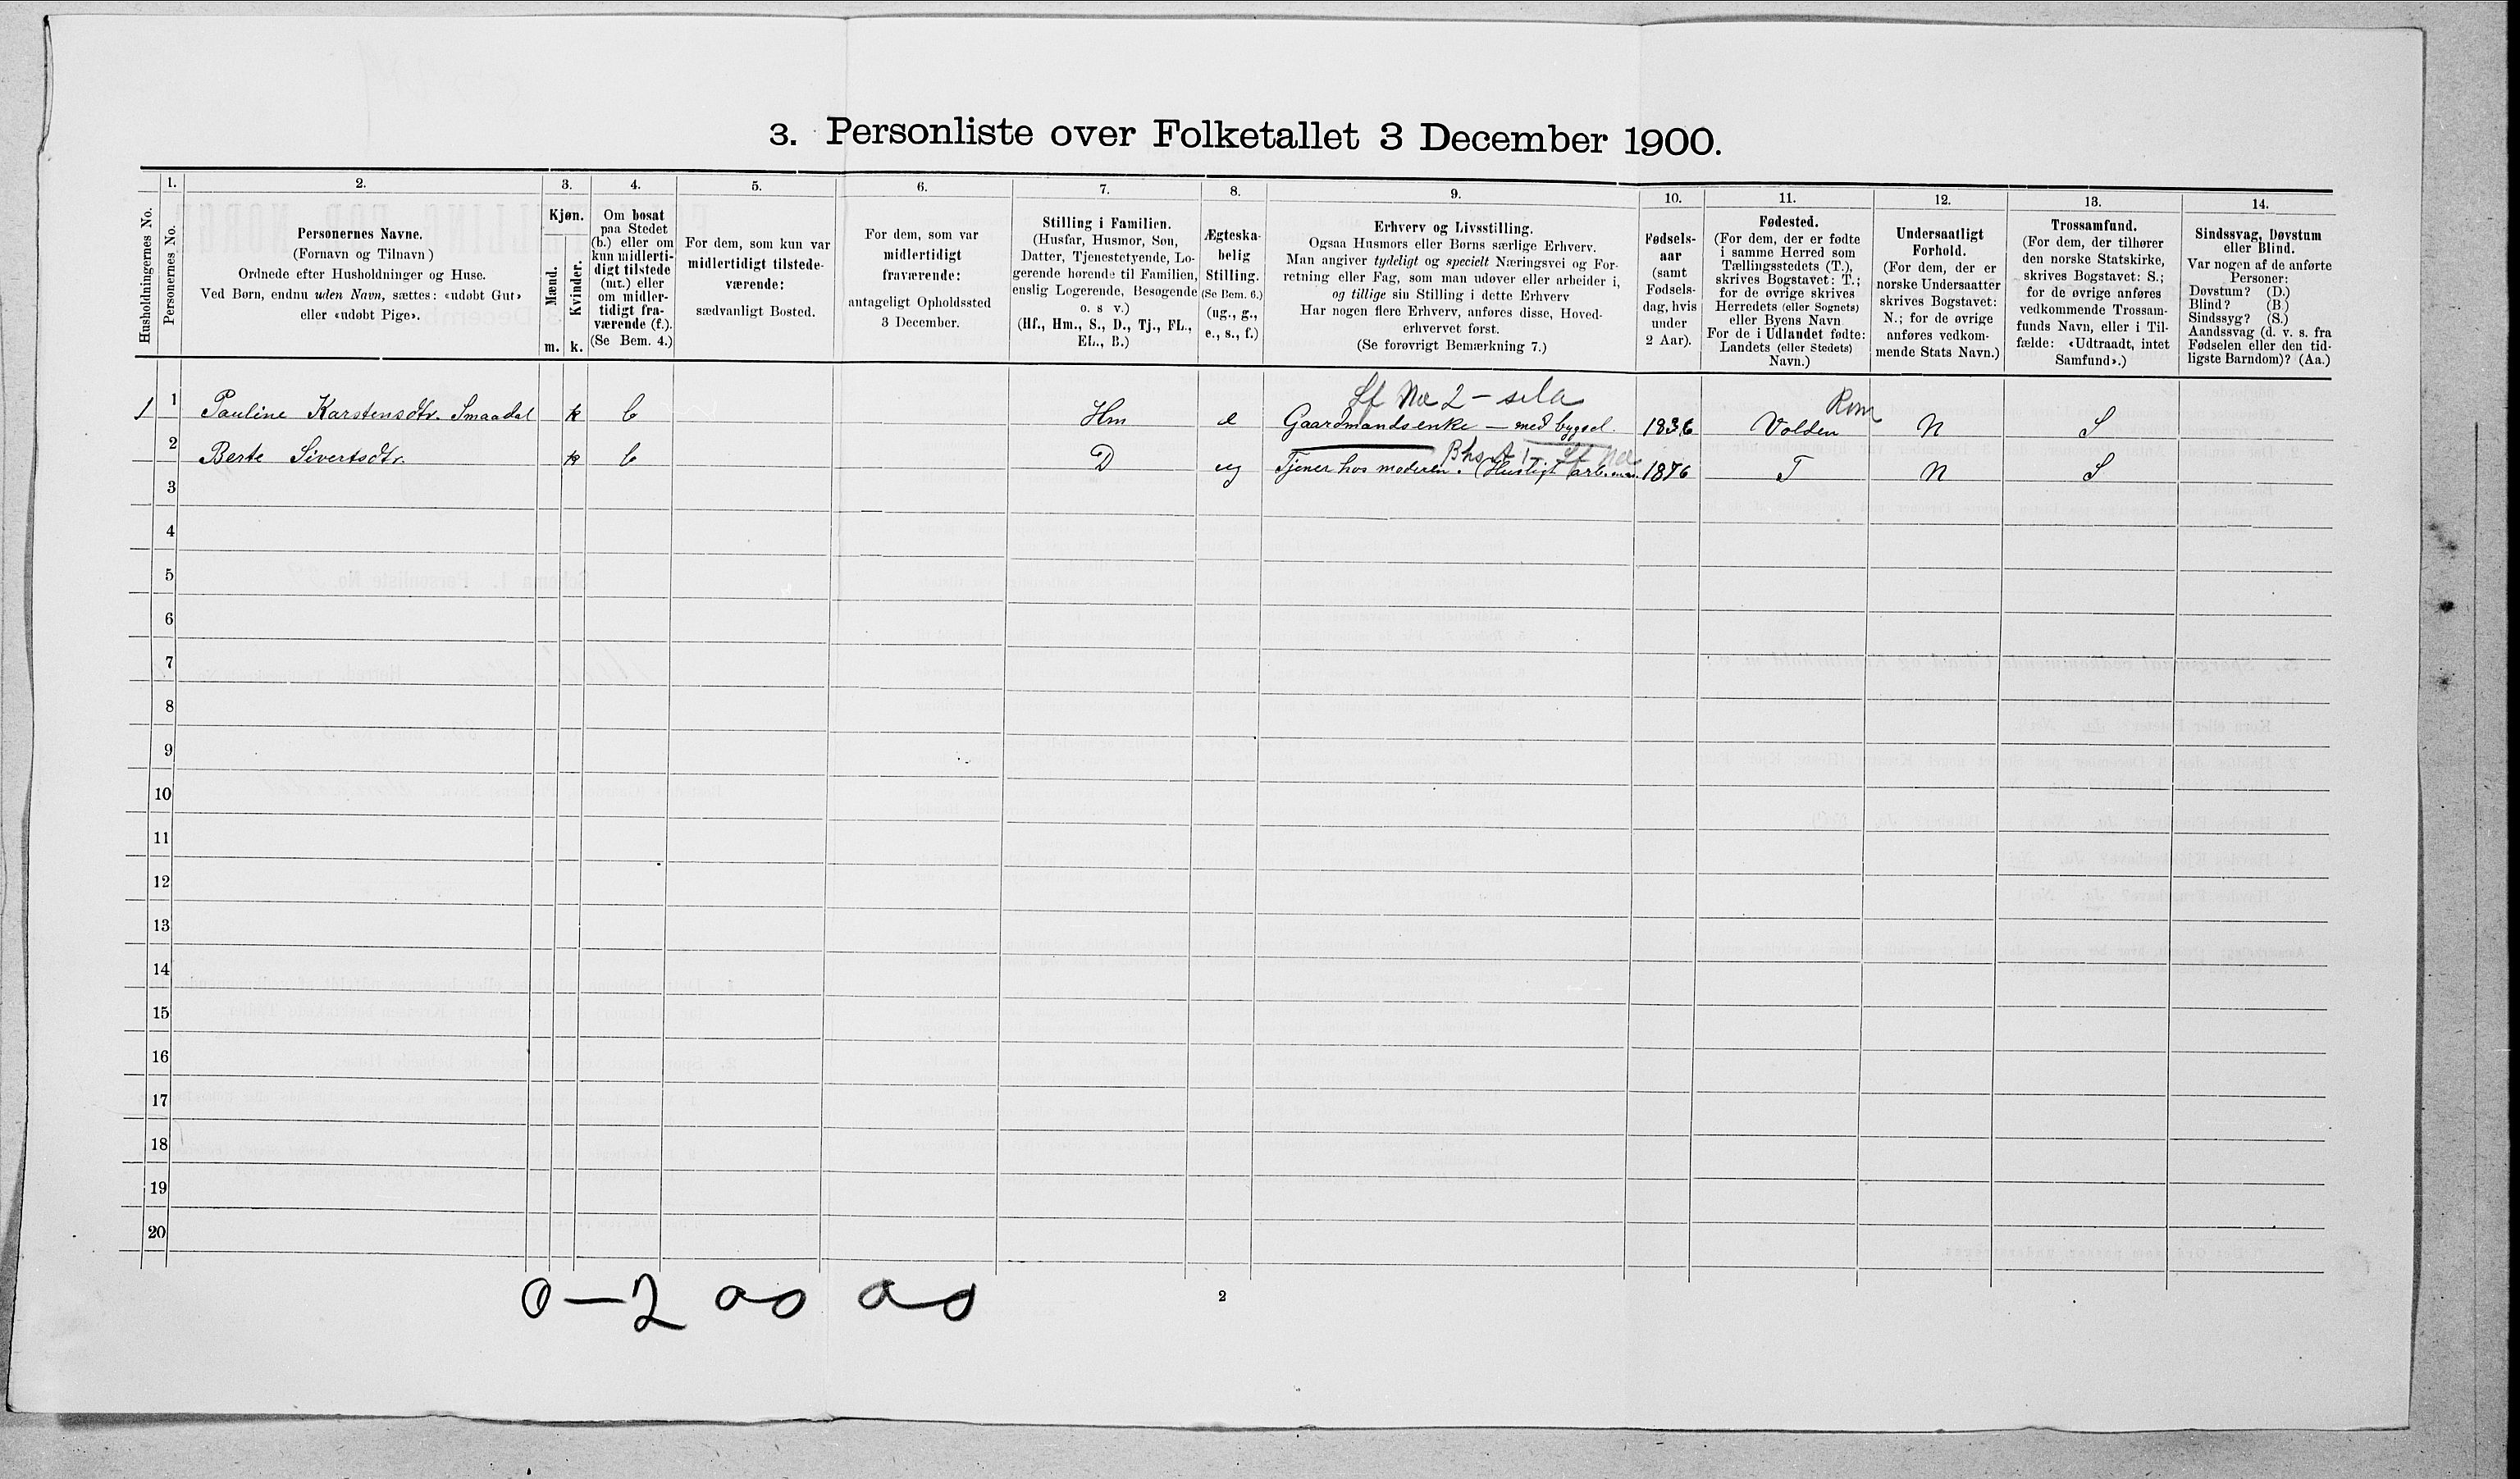 3. Personliste over Folketallet 3 December 1900.
Husholdningernes No.
1.
Personernes No.
2.
Personernes Navne.
(Fornavn og Tilnavn)
Ordnede efter Husholdninger og Huse.
Ved Børn, endnu uden Navn, sættes: «udøbt Gut»
eller «udøbt Pige».
3.
Kjøn.
Mænd.
Kvinder.
m. k.
4.
Om bosat
paa Stedet
(b.) eller om
kun midlerti-
digt tilstede
(mt.) eller
om midler-
tidigt fra-
værende (f.).
(Se Bem. 4.)
5.
For dem, som kun var
midlertidigt tilstede-
værende:
sædvanligt Bosted.
6.
For dem, som var
midlertidigt
fraværende:
antageligt Opholdssted
3 December.
7.
Stilling i Familien.
(Husfar, Husmor, Søn,
Datter, Tjenestetyende, Lo-
gerende hørende til Familien,
enslig Logerende, Besøgende
o. s v.)
(Hf., Hm., S., D., Tj., FL.,
EL., B.)
8.
Ægteska-
belig
Stilling.
(Se Bem. 6.)
(ug., g.,
e., s., f.)
9.
Erhverv og Livsstilling.
Ogsaa Husmors eller Børns særlige Erhverv.
Man angiver tydeligt og specielt Næringsvei og For-
retning eller Fag, som man udøver eller arbeider i,
og tillige sin Stilling i dette Erhverv
Har nogen flere Erhverv, anføres disse, Hoved-
erhvervet først.
(Se forøvrigt Bemærkning 7.)
10.
Fødsels-
aar
(samt
Fødsels-
dag, hvis
under
2 Aar).
11.
Fødested.
(For dem, der er fødte
i samme Herred som
Tællingsstedets (T.),
skrives Bogstavet: T.;
for de øvrige skrives
Herredets (eller Sognets)
eller Byens Navn
For de i Udlandet fødte:
Landets (eller Stedets)
Navn.)
12.
Undersaatligt
Forhold.
(For dem, der er
norske Undersaatter
skrives Bogstavet:
N.; for de øvrige
anføres vedkom-
mende Stats Navn.)
13.
Trossamfund.
(For dem, der tilhører
den norske Statskirke,
skrives Bogstavet: S.;
for de øvrige anføres
vedkommende Trossam-
funds Navn, eller i Til-
fælde: «Udtraadt, intet
Samfund».)
14.
Sindssvag, Døvstum
eller Blind.
Var nogen af de anførte
Personer:
Døvstum? (D.)
Blind? (B)
Sindssyg? (S.)
Aandssvag (d. v. s. fra
Fødselen eller den tid-
ligste Barndom)? (Aa.)
1 1 Pauline Karstensdtr. Smaadal k b Hm e Gaardmandsenke — med bygsel. 1836 Volden Rom N S
2 Berte Sivertsdtr. k b D ug Tjener hos moderen. (Husligt arb. 1876 T N S
3
4
5
6
7
8
9
10
11
12
13
14
15
16
17
18
19
20
0 — 2
2